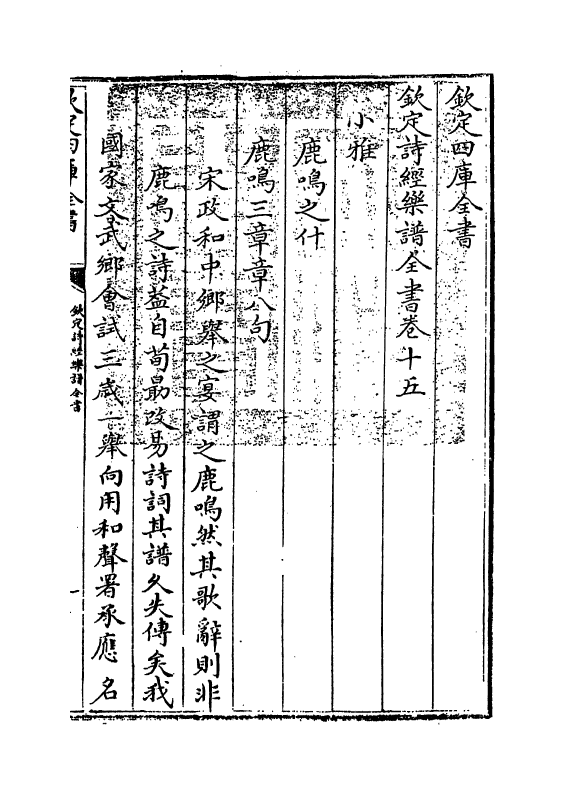 欽定四庫全書
欽定詩經樂譜全書卷十五
小雅
鹿鳴之什
鹿鳴三章章八句
宋政和中鄉舉之宴謂之鹿鳴然其歌辭則非
鹿鳴之詩葢自荀勗改易詩詞其譜久失傳矣我
國家文武鄉會試三歲一舉向用和聲署承應名
欽定四庫全書
欽定詩經樂譜全書
一